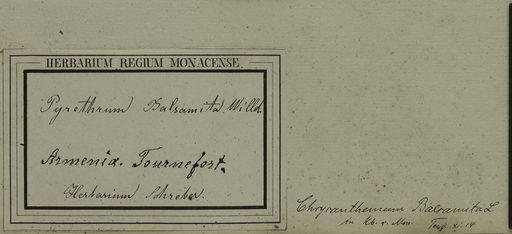 HERBARIUM REGIUM MONACENSE.
Pyrethrum Balsamita Willd.
Armenia. Tournefort.
Herbarium Schreber.
Chrysanthemum Balsamita L